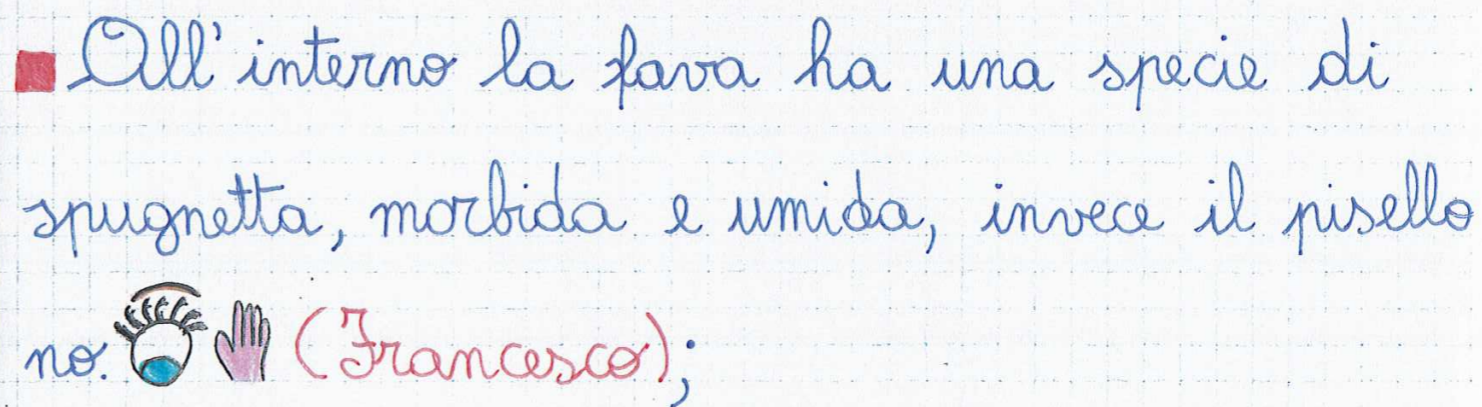 All'interno la fava ha una specie di
spugnetta, morbida e umida, invece il pisello
no. (Francesco);